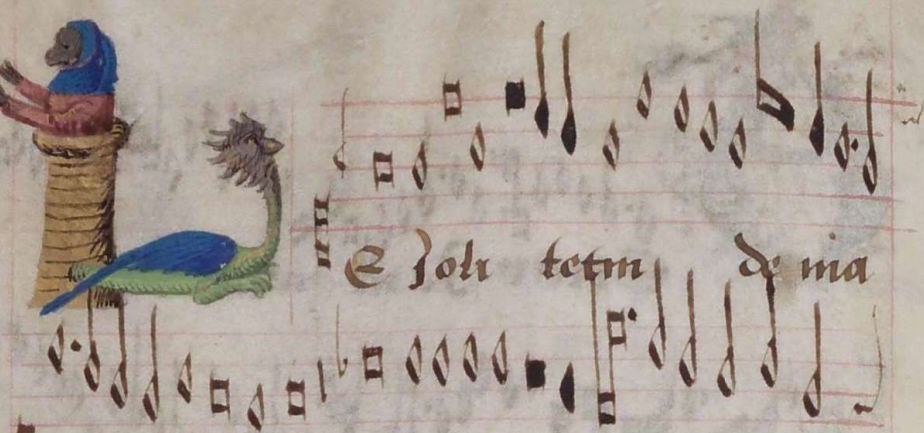 LE joli tetin de ma